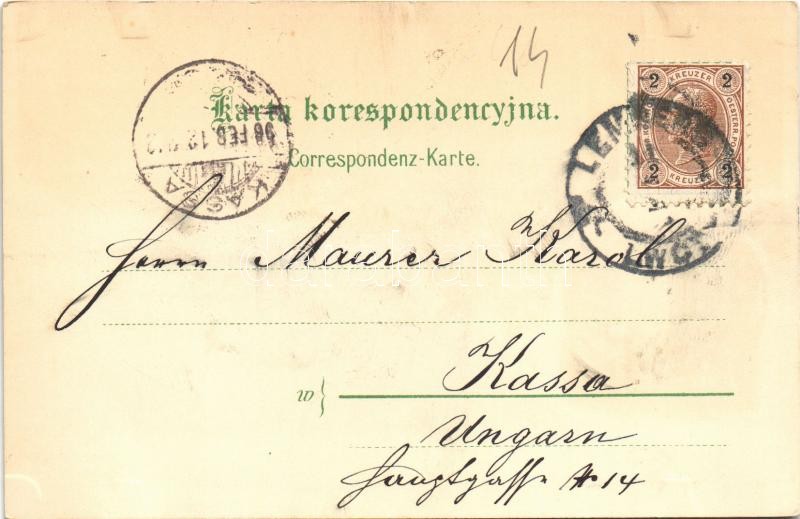 14
Karta korespondencyjna.
Correspondenz-Karte.
2 KREUZER 2
2 KREUZER 2
LEMBERG
LWÓW
KASSA
98 FEB 12
Herrn Maurer Karol
Kassa
w }
Ungarn
Hauptgasse № 14